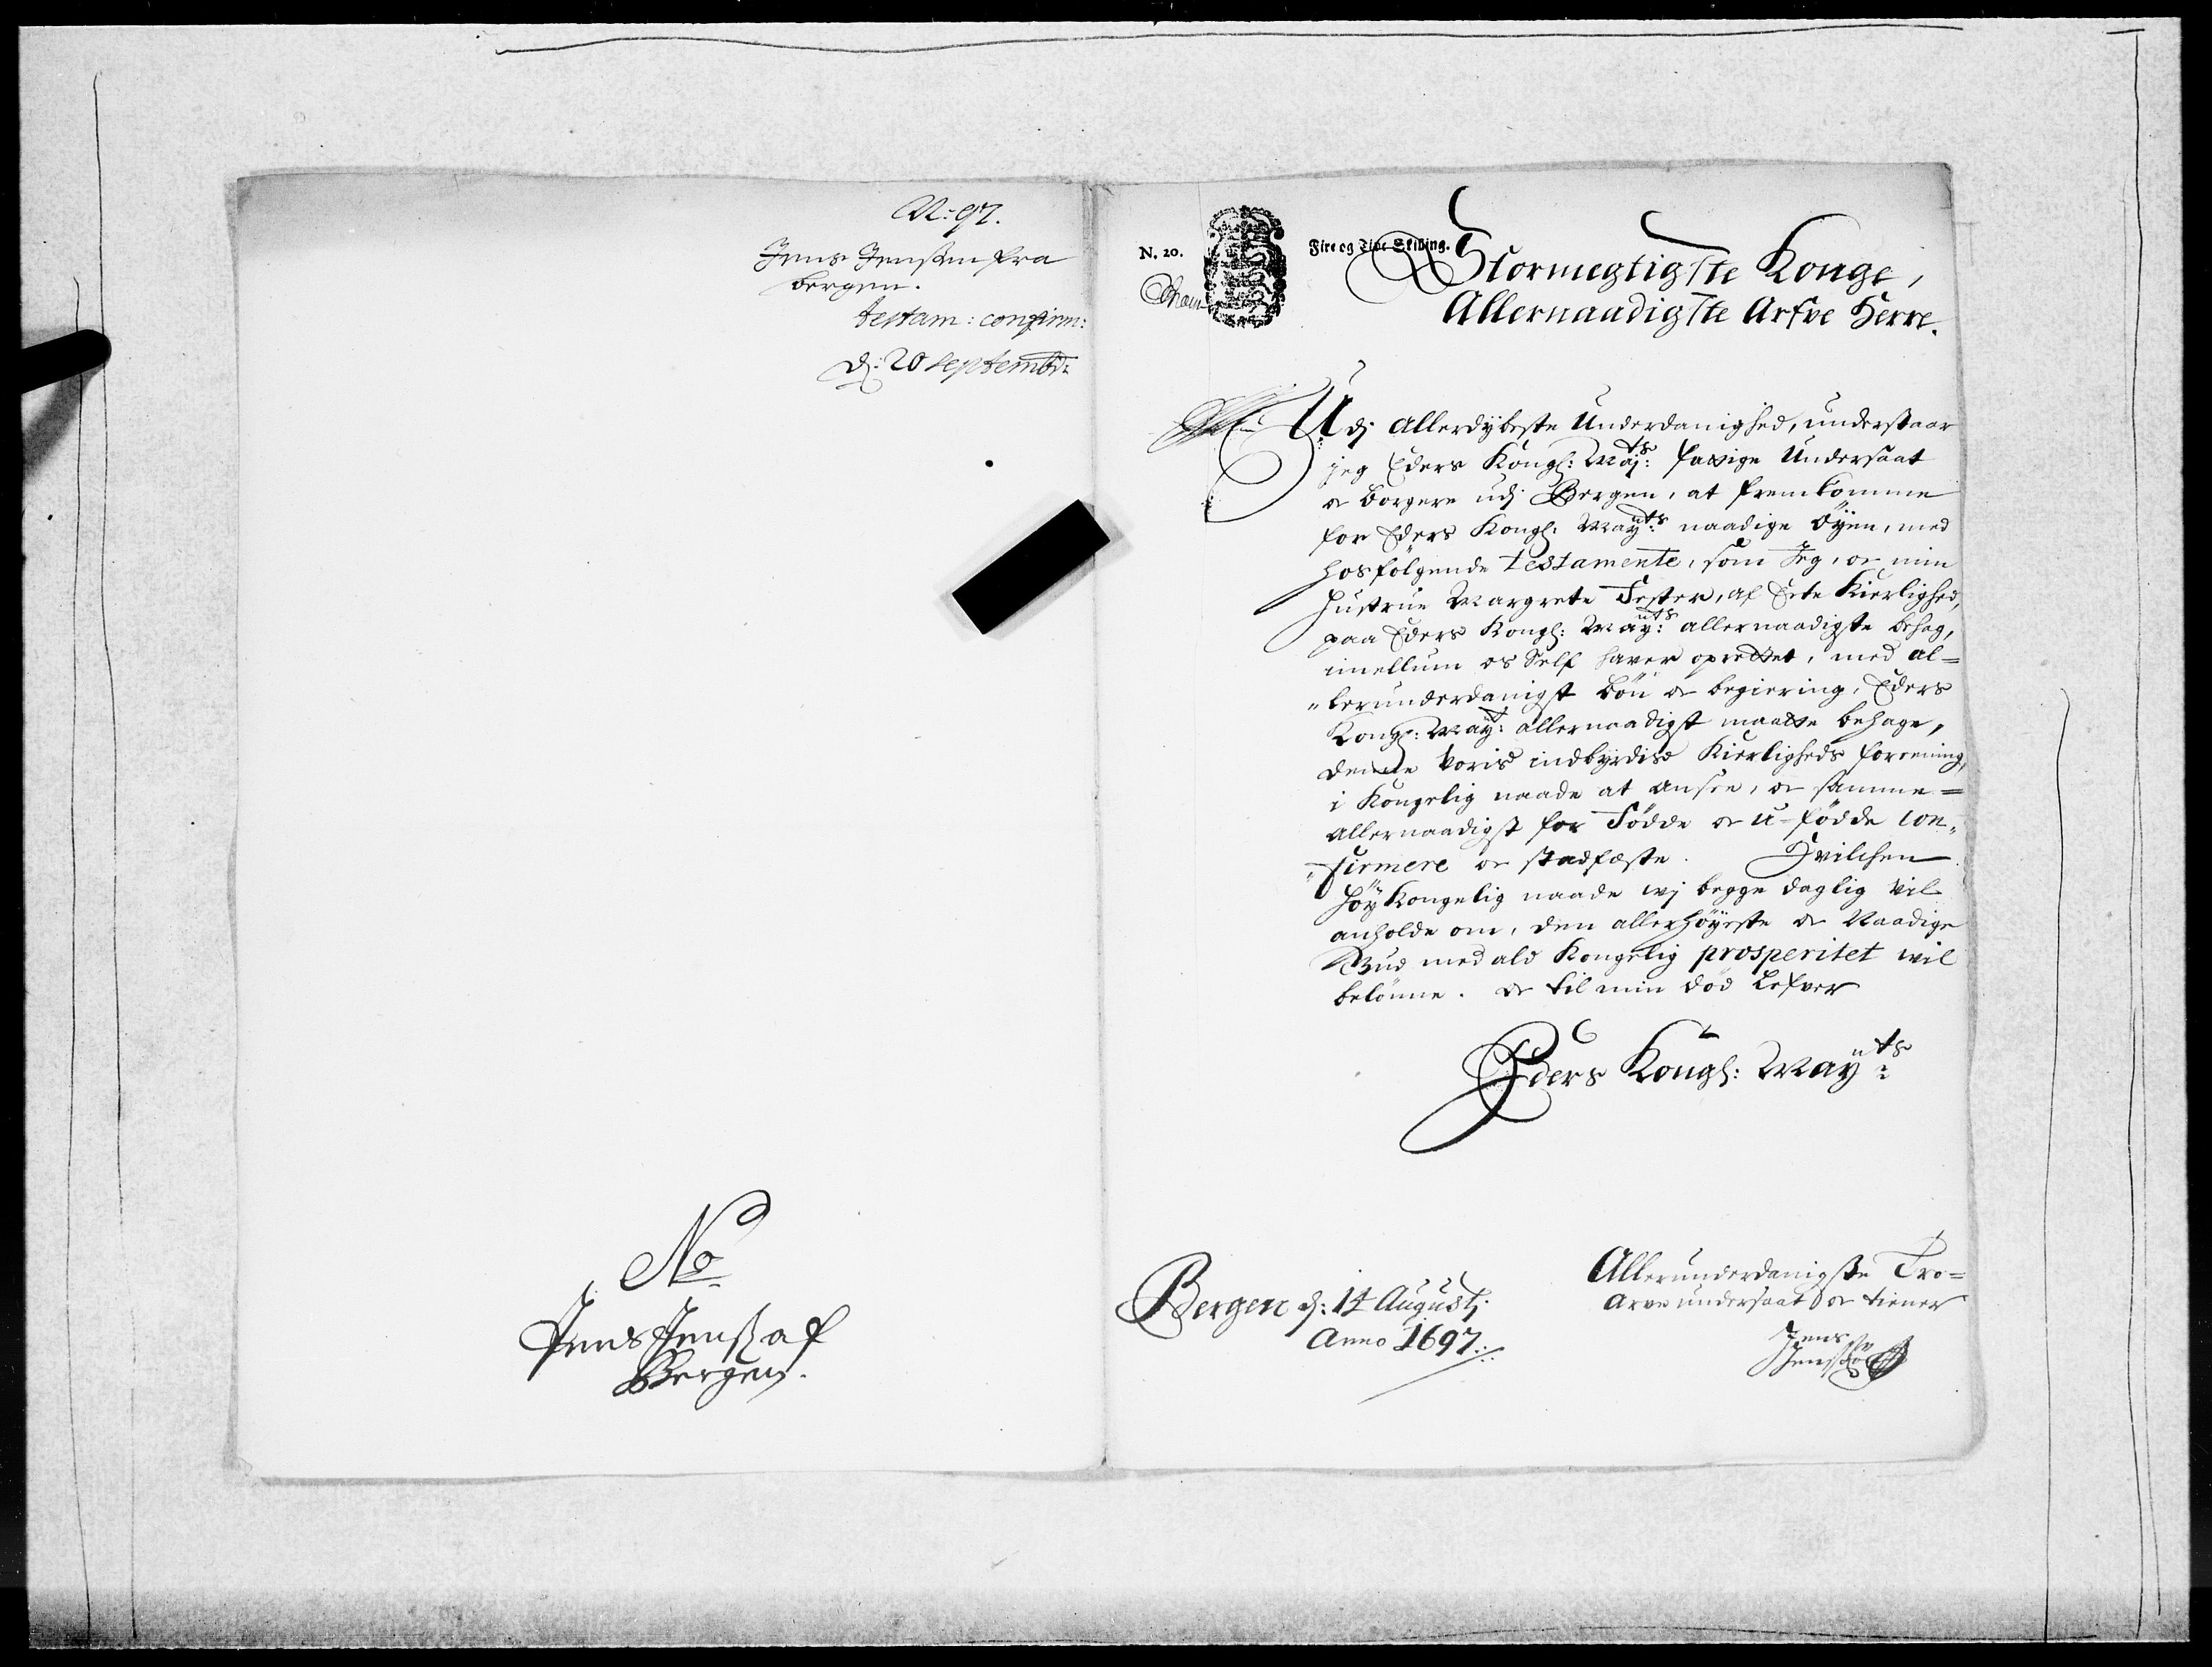 N: 97.
Jens Jenssen fra
bergen.
testam: confirm:
d: 20 septembr:
No
Jens Jenss af
Bergen.
N. 20.
Fire og Tive Skilling.
Stormegtigste Konge,
Allernaadigste Arfve Herre.
Udj Allerdybeste Underdanighed, understaar
jeg Eders Kongl: Mayts: fattige Undersaat
oc borgere udj Bergen, at fremkomme
for Eders Kongl: Mayts: naadige Öyen, med
hosfölgende testamente, som Jeg, oc min
Hustrue Margrete Fester, af Ecte Kierlighed,
paa Eders Kongl: Mayts: allernaadigste behag,
imellum os Self hafver oprettet, med al=
lerunderdanigst bön oc begiering, Eders
Kongl: Mayt: allernaadigst maatte behage,
denne voris indbyrdise Kierligheds forening,
i Kongelig naade at ansee, oc samme=
allernaadigst for Födde oc u-födde con„
„firmere oc stadfæste. Hvilchen
höy Kongelig naade wj begge daglig vil
anholde om, den allerhöyeste oc Naadige
Gud med ald Kongelig prosperitet wil
belönne. oc til min död Lefver
Eders Kongl: Mayts:
Bergen d: 14 Augustj
Anno 1697.
Allerunderdanigste Tro=
Arve undersaat oc tiener
Jens
Jenssön